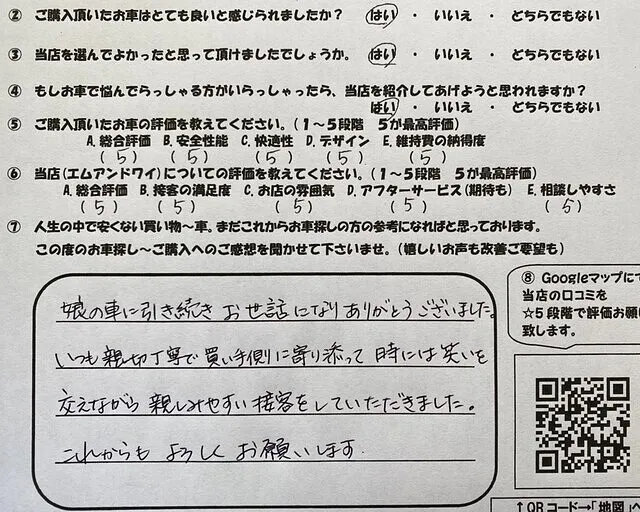 ② ご購入頂いたお車はとても良いと感じられましたか？ はい ・ いいえ ・ どちらでもない
③ 当店を選んでよかったと思って頂けましたでしょうか。 はい ・ いいえ ・ どちらでもない
④ もしお車で悩んでらっしゃる方がいらっしゃったら、当店を紹介してあげようと思われますか？
はい ・ いいえ ・ どちらでもない
⑤ ご購入頂いたお車の評価を教えてください。（１～５段階　５が最高評価）
A. 総合評価 B. 安全性能 C. 快適性 D. デザイン E. 維持費の納得度
（ 5 ） （ 5 ） （ 5 ） （ 5 ） （ 5 ）
⑥ 当店(エムアンドワイ)についての評価を教えてください。（１～５段階　５が最高評価）
A. 総合評価 B. 接客の満足度 C. お店の雰囲気 D. アフターサービス(期待も) E. 相談しやすさ
（ 5 ） （ 5 ） （ 5 ） （ 5 ） （ 5 ）
⑦ 人生の中で安くない買い物～車。まだこれからお車探しの方の参考になればと思っております。
この度のお車探し～ご購入へのご感想を聞かせて下さいませ。（嬉しいお声も改善ご要望も）
娘の車に引き続き お世話になり ありがとうございました。
いつも親切丁寧で買い手側に寄り添って 時には笑いを
交えながら 親しみやすい接客をしていただきました。
これからも よろしく お願いします.
⑧ Googleマップにて
当店の口コミを
☆５段階で評価お願い
致します。
↑QRコード→「地図」へ